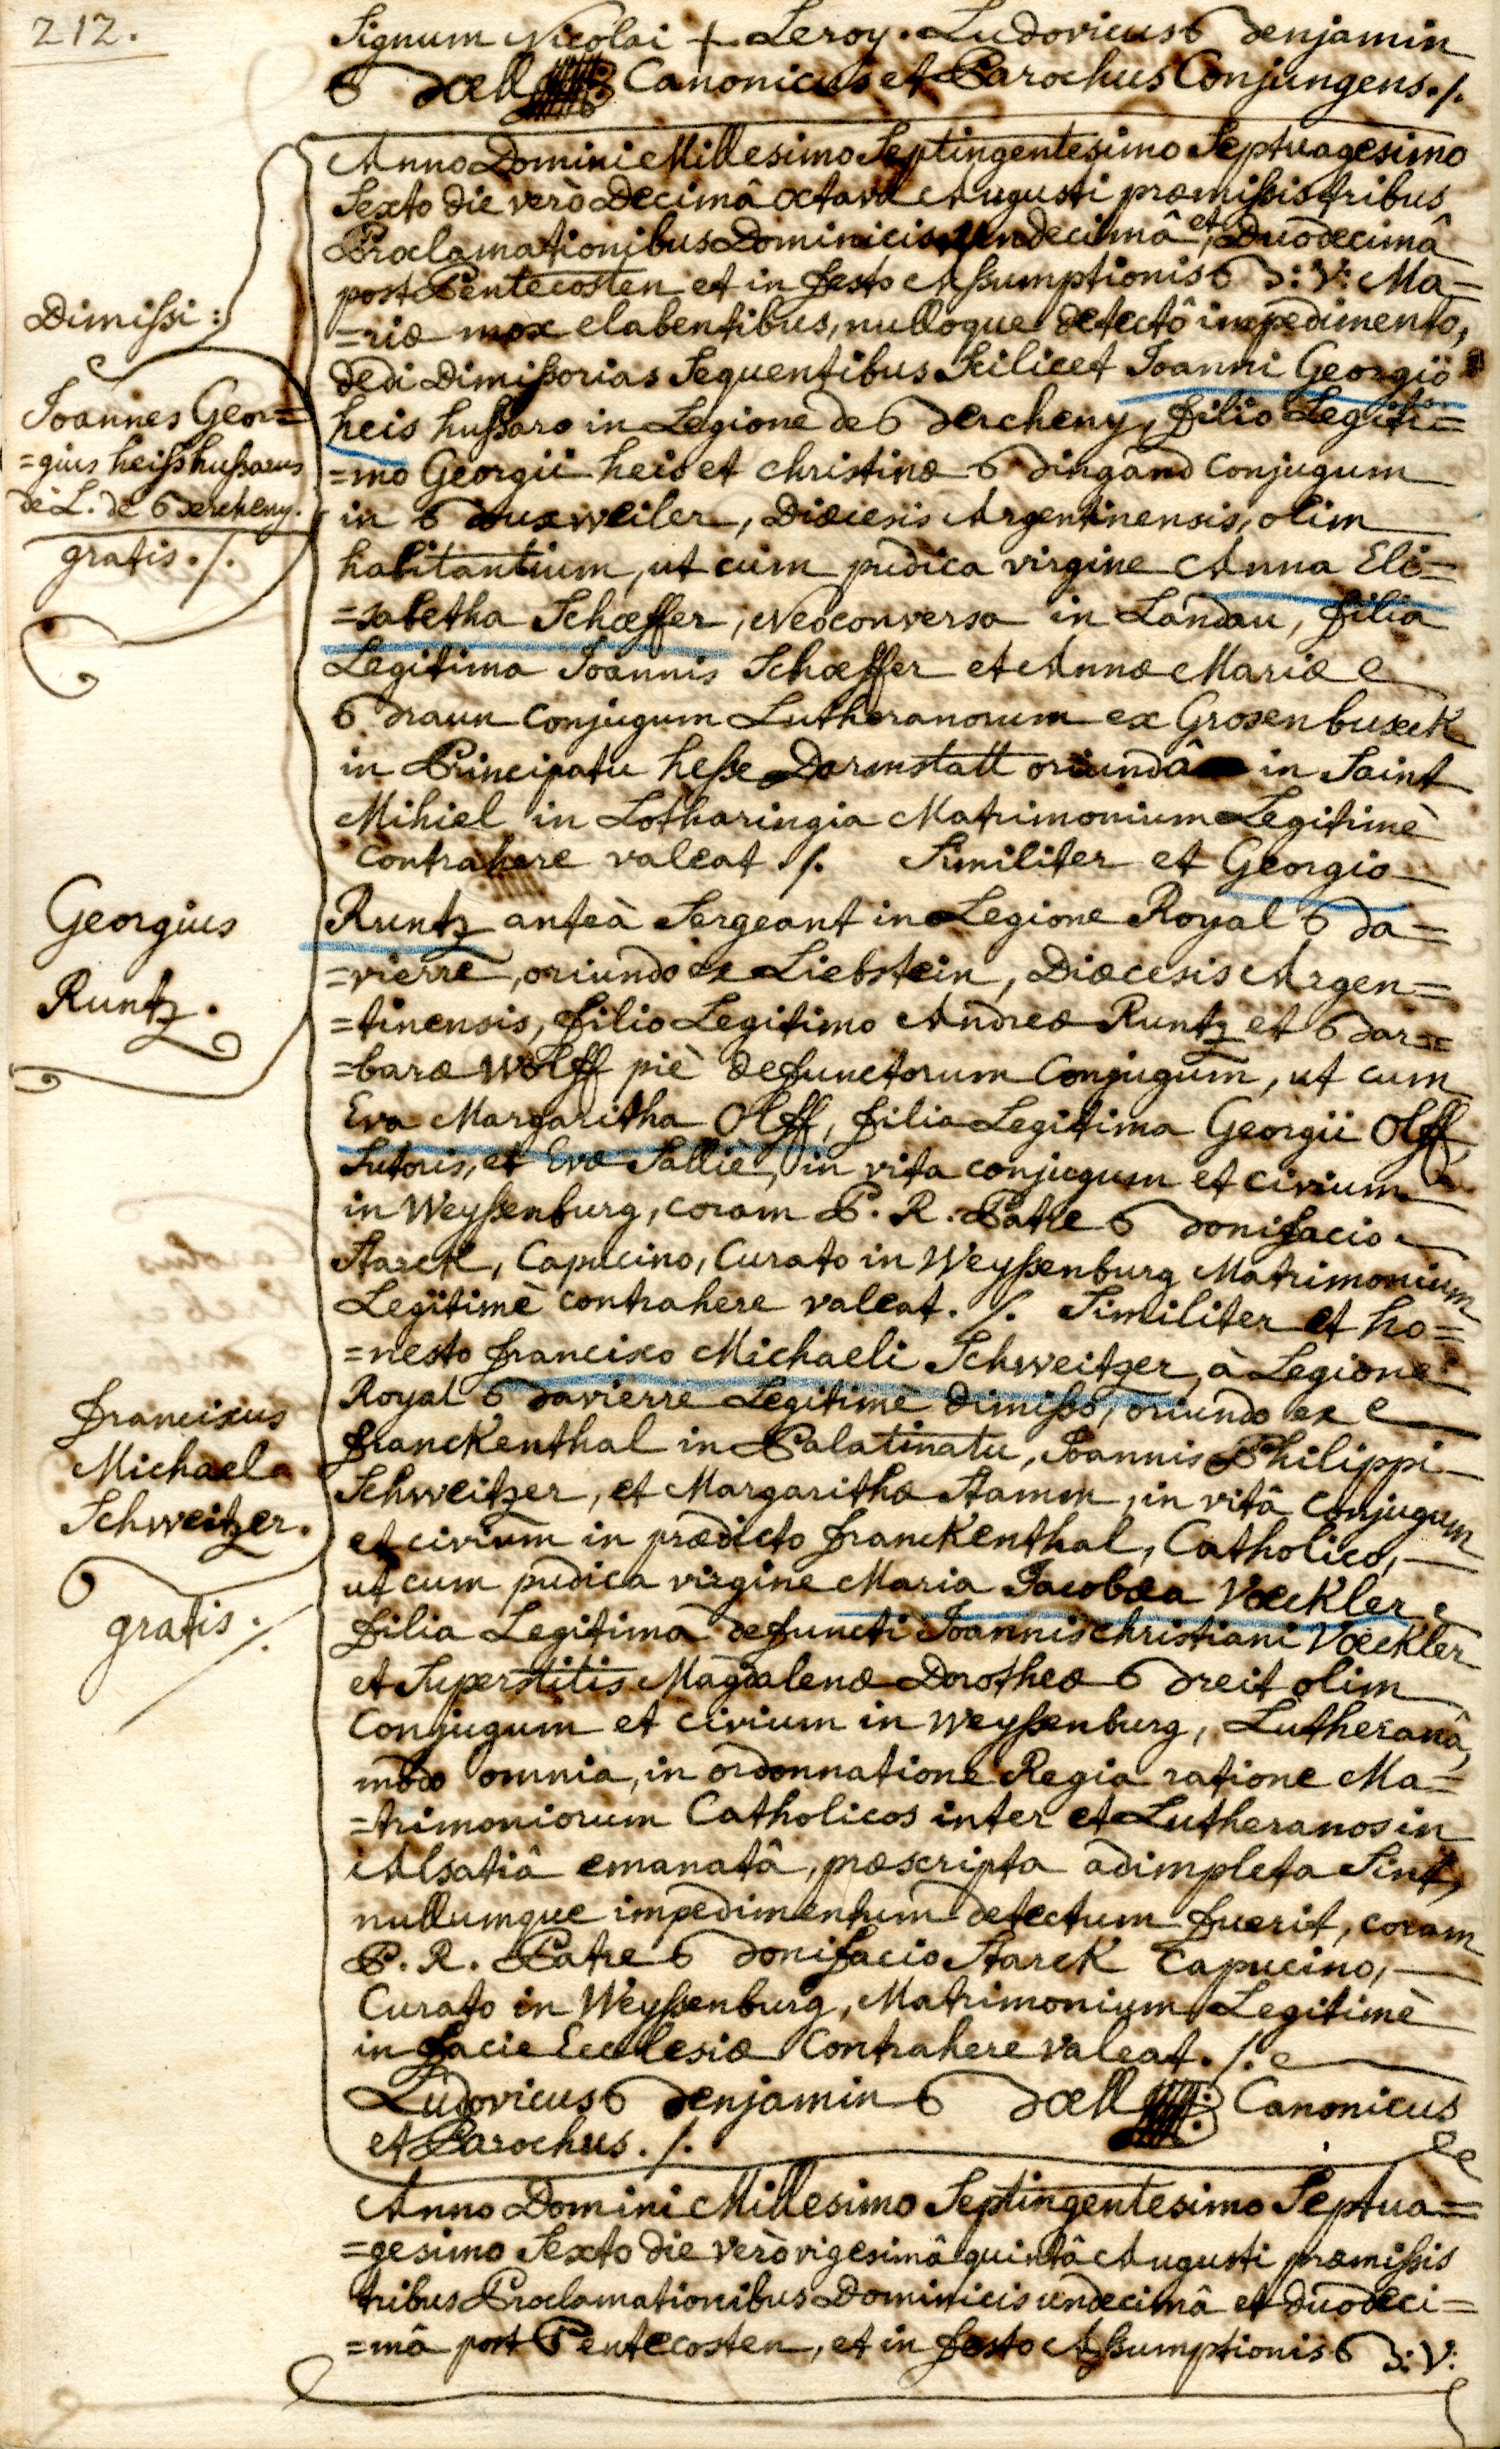 212.
Signum Nicolai + Leroy. Ludovicus Benjamin
Bœll Canonicus et Parochus Conjungens./.
Anno Domini Millesimo Septingentesimo Septuagesimo
Sexto die verò Decimâ octava Augusti præmissis tribus
Proclamationibus Dominicis undecimâ et Duodecimâ
post Pentecosten et in festo Assumptionis B: V: Ma=
=riæ mox elabentibus, nulloque detectô impedimento,
dedi Dimissorias Sequentibus Scilicet Joanni Georgiô
heis hussaro in Legione de Bercheny, filio Legiti=
=mo Georgii heis et christinæ Bingand conjugum
in Buxweiler, Diœcesis Argentinensis, olim
habitantium, ut cum pudica virgine Anna Eli=
=sabetha Schœffer, Neoconversa in Landau, filia
Legitima Joannis Schœffer et Annæ Mariæ
Braun conjugum Lutheranorum ex Grosenbuseck
in Principatu hesse Darmstatt oriundâ in Saint
Mihiel in Lotharingia Matrimonium Legitimè
contrahere valeat ./. Similiter et Georgio
Runtz anteà Sergeant in Legione Royal Ba=
=vierre, oriundo ex Liebstein, Diœcesis Argen=
=tinensis, filio Legitimo Andreæ Runtz et Bar=
=baræ Wolff piè defunctorum Conjugum, ut cum
Eva Margaritha Olff, filia Legitima Georgii Olff
Sutoris, et Evæ Salliè, in vita conjugum et civium
in Weyssenburg, coram P. R. Patre Bonifacio
Starck, Capucino, Curato in Weyssenburg Matrimonium
Legitimè contrahere valeat. /. Similiter et ho=
=nesto francisco Michaeli Schweitzer, à Legione
Royal Bavierre Legitimè dimisso, oriundo ex
franckenthal in Palatinatu, Joannis Philippi
Schweitzer, et Margarithæ Stamm, in vitâ conjugum
et civium in prædicto franckenthal, Catholico,
ut cum pudica virgine Maria Jacobæa Vœckler
filia Legitima defuncti Joannis christiani Vœckler
et Superstitis Magdalenæ Dorotheæ Breit olim
Conjugum et civium in Weyssenburg, Lutheranâ,
modo omnia, in ordonnatione Regia ratione Ma=
=trimoniorum Catholicos inter et Lutheranos in
Alsatiâ emanatâ, præscripta adimpleta Sint,
nullumque impedimentum detectum fuerit, coram
P. R. Patre Bonifacio Starck Capucino,
Curato in Weyssenburg, Matrimonium Legitimè
in facie Ecclesiæ contrahere valeat. /.
Ludovicus Benjamin Bœll Canonicus
et Parochus ./.
Anno Domini Millesimo Septingentesimo Septua=
=gesimo Sexto die verò vigesimâ quintâ Augusti præmissis
tribus Proclamationibus Dominicis undecimâ et duodeci=
=mâ post Pentecosten, et in festo Assumptionis B: V:
Dimissi:
Joannes Geor=
=gius heiss hussarus
de L. de Bercheny.
gratis./.
Georgius
Runtz.
franciscus
Michael
Schweitzer.
gratis./.